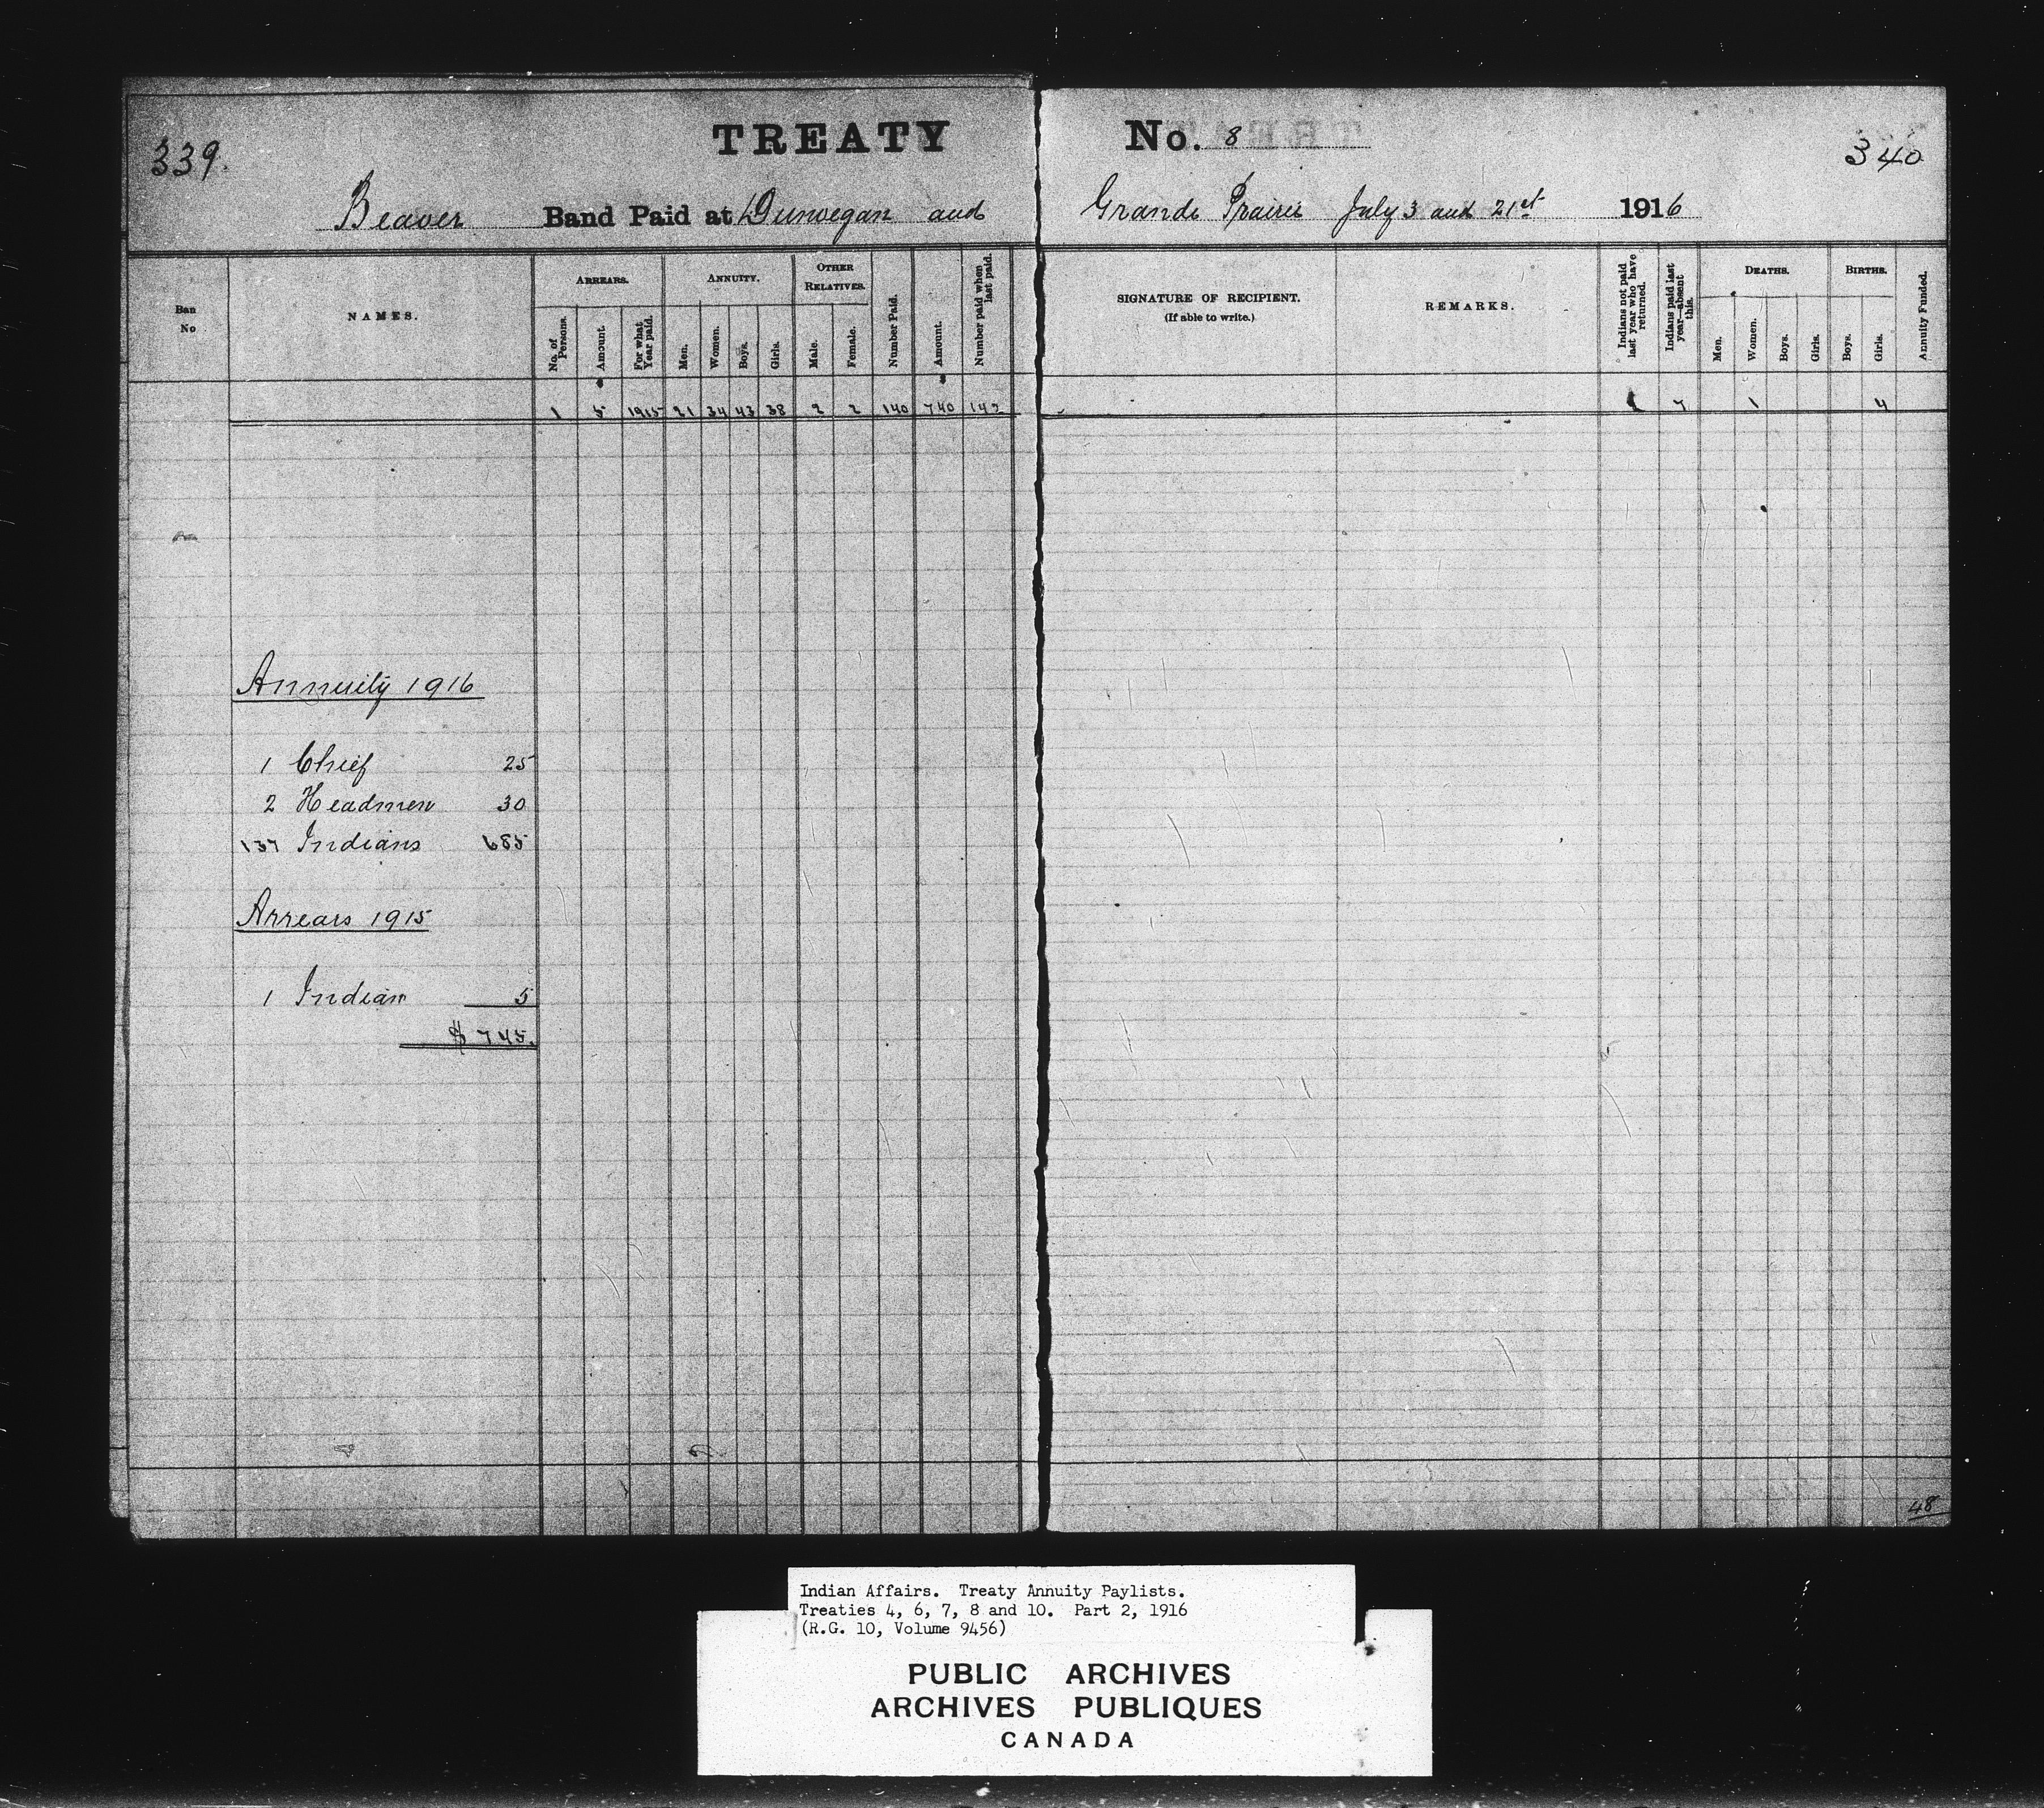 339.
TREATY No. 8
340
Beaver Band Paid at Dunvegan and Grande Prairie July 3 and 21st 1916
Ban No
NAMES.
ARREARS.
No. of Persons.
Amount.
For what Year paid.
ANNUITY.
Men.
Women.
Boys.
Girls.
OTHER RELATIVES.
Male.
Female.
Number Paid.
Amount.
Number paid when last paid.
SIGNATURE OF RECIPIENT.
(If able to write.)
REMARKS.
Indians not paid last year who have returned.
Indians paid last year—absent this.
DEATHS.
Men.
Women.
Boys.
Girls.
BIRTHS.
Boys.
Girls.
Annuity Funded.
1 5 1915 21 34 43 38 2 2 140 740 142 1 7 1 4
Annuity 1916
1 Chief 25
2 Headmen 30
137 Indians 685
Arrears 1915
1 Indian 5
$ 745.
48
Indian Affairs. Treaty Annuity Paylists.
Treaties 4, 6, 7, 8 and 10. Part 2, 1916
(R.G. 10, Volume 9456)
PUBLIC ARCHIVES
ARCHIVES PUBLIQUES
CANADA